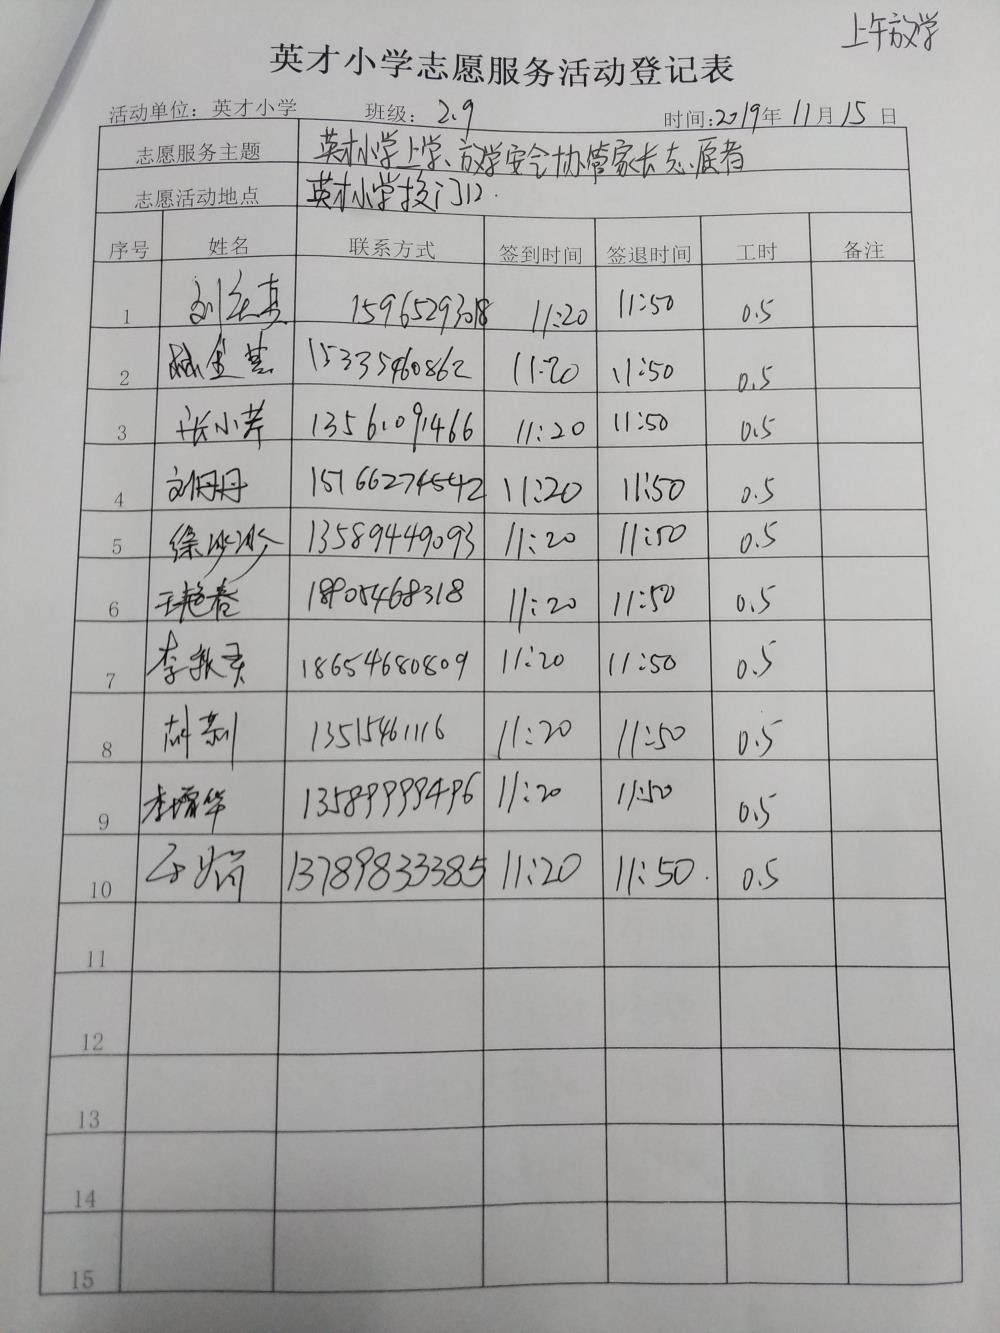 上午放学
英才小学志愿服务活动登记表
活动单位：英才小学 班级：2.9 时间：2019年 11月 15日
志愿服务主题 英才小学上学、放学安全协管家长志愿者
志愿活动地点 英才小学校门口.
序号 姓名 联系方式 签到时间 签退时间 工时 备注
1 15965293018 11:20 11:50 0.5
2 15335460862 11:20 11:50 0.5
3 张小芹 13561091466 11:20 11:50 0.5
4 刘丹丹 15166274542 11:20 11:50 0.5
5 徐沙沙 13589449093 11:20 11:50 0.5
6 王艳春 18905468318 11:20 11:50 0.5
7 李 18654680809 11:20 11:50 0.5
8 13515461116 11:20 11:50 0.5
9 李增华 13589999496 11:20 11:50 0.5
10 13789833385 11:20 11:50. 0.5
11
12
13
14
15